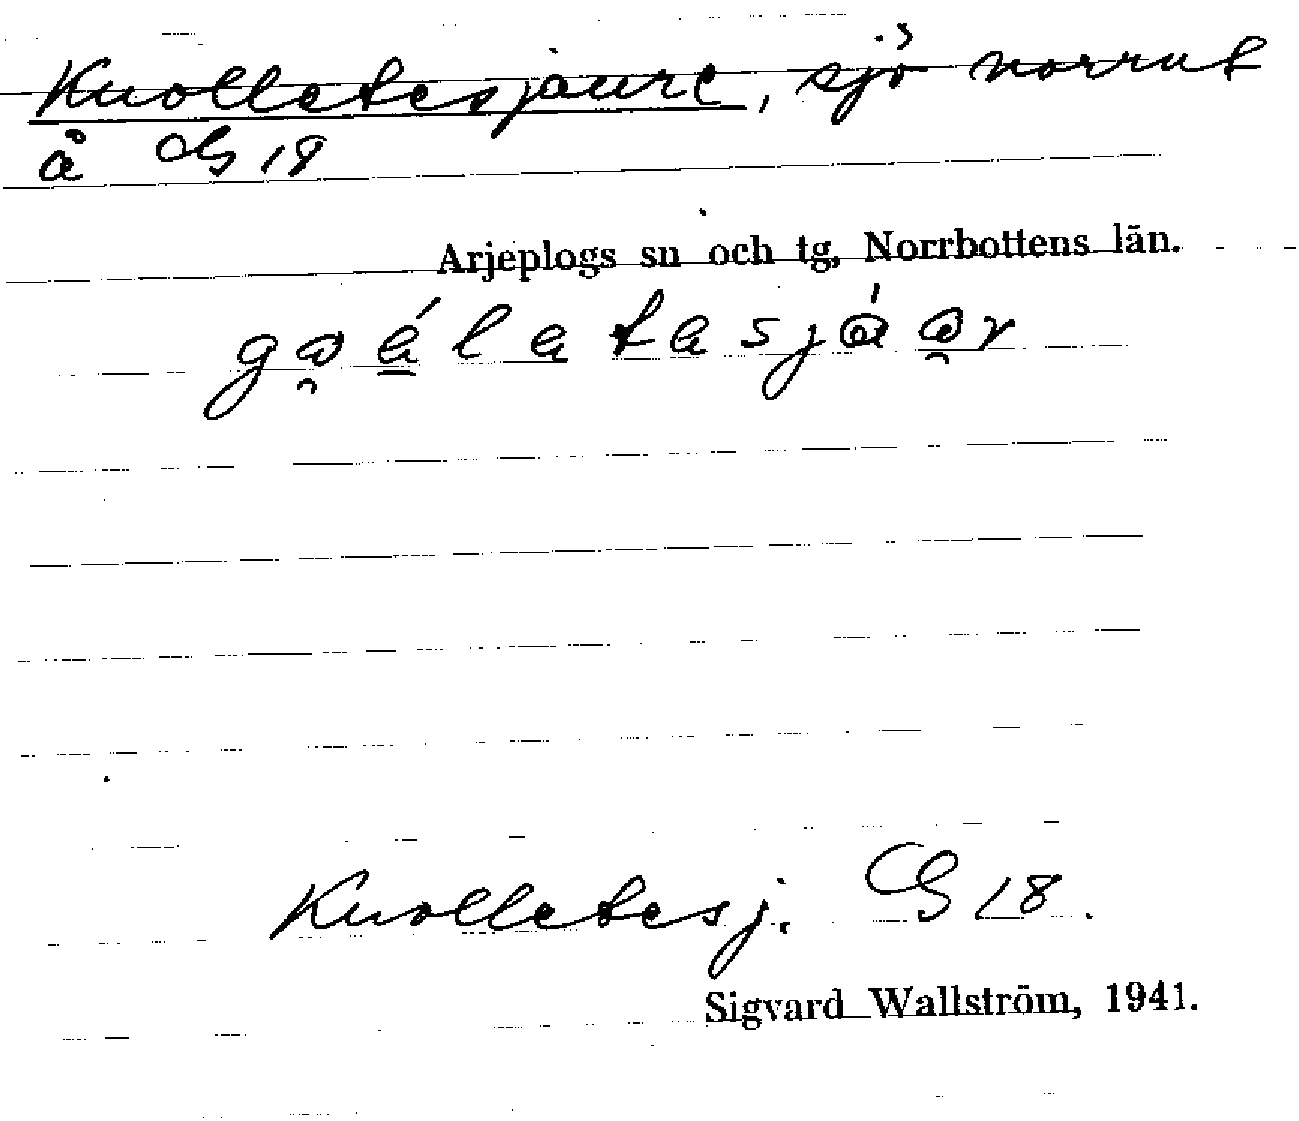 Kuolletesjaure, sjö norrut
å CG 18
Arjeplogs sn och tg, Norrbottens län.
Kuolletesj. CG 18.
Sigvard Wallström, 1941.